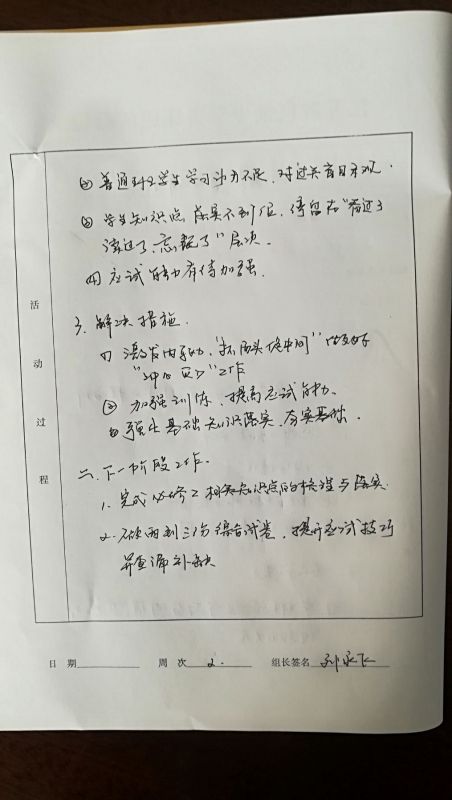 ② 普通班学生学习动力不足，对过关盲目乐观.
③ 学生知识点落实不到位，停留在“看过了
读过了、忘记了”层次.
四 应试能力有待加强.
3. 解决措施.
(1) 激发内驱动，抓两头促中间”
工作
② 加强训练，提高应试能力、
③ 强化基础知识落实，夯实基础.
二. 下一阶段工作.
1. 完成必修2相关知识点的梳理与落实.
2. 做两到三份综合试卷，提升应试技巧
并查漏补缺
活动过程
日 期 周 次 2. 组长签名 刘永飞